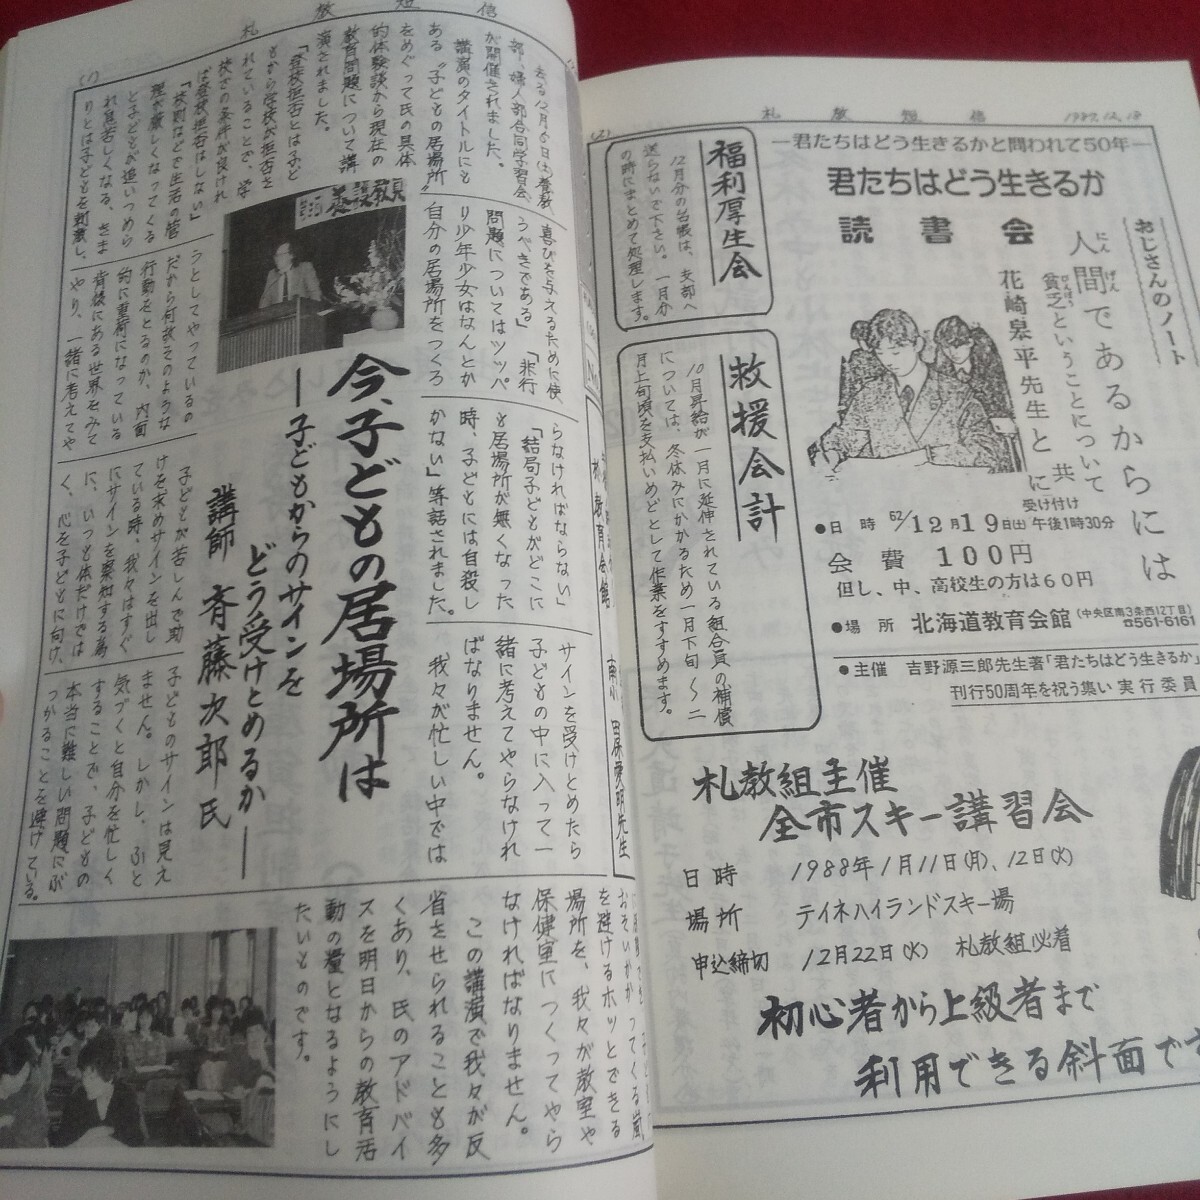 札教短信
(1)
去る12月5日(土)養教
部、婦人部合同学習会
が開催されました。
講演のタイトルにも
ある〝子どもの居場所〟
をめぐって氏の具体
的体験談から現在の
教育問題について講
演されました。
「登校拒否とは子ど
もから学校が拒否さ
れていることで、学
校での条件が良けれ
ば登校拒否はしない」
「校則などで生活の管
理が厳しくなってくる
と子どもが追いつめら
れ息苦しくなる。きま
りとは子どもを
喜びを与えるために使
うべきである」「非行
問題についてはツッパ
り少年少女はなんとか
自分の居場所をつくろ
うとしてやっているの
だから何故そのような
行動をとるのか、内面
的に重荷になっている
背後にある世界をみて
やり、一緒に考えてや
らなければならない」
「結局子どもがどこに
も居場所が無くなった
時、子どもには自殺し
かない」等話されました。
今、子どもの居場所は
―子どもからのサインを
どう受けとめるか―
講師 斉藤次郎氏
子どもが苦しんで助
けを求めサインを出し
ている時、我々はすぐ
にサインを察知する為
に、いつも体だけでは
く、心を子どもに向け、
サインを受けとめたら
子どもの中に入って一
緒に考えてやらなけれ
ばなりません。
我々が忙しい中では
子どものサインは見え
ません。しかし、ふと
気づくと自分を忙しく
することで、子どもの
本当に難しい問題にぶ
つかることを避けている。
おそいかかってくる嵐
を避けるホッとできる
場所を、我々が教室や
保健室につくってやら
なければなりません。
この講演で我々が反
省させられることも多
くあり、氏のアドバイ
スを明日からの教育活
動の糧となるようにし
たいものです。
(2)
札教短信
1987.12.18
福利厚生会
12月分の台帳は、支部へ
送らないで下さい。一月分
の時にまとめて処理します。
救援会計
10月昇給が一月に延伸されている組合員の補償
については、冬休みにかかるため一月下旬～二
月上旬頃を支払いめどとして作業をすすめます。
―君たちはどう生きるかと問われて50年―
君たちはどう生きるか
読書会
おじさんのノート
人間であるからには
にんげん
貧乏ということについて
びんぼう
花崎皋平先生と共に
●日時 62/12月19日(土) 受け付け 午後1時30分
会費 100円
但し、中、高校生の方は60円
●場所 北海道教育会館 (中央区南3条西12丁目) ☎561-6161
●主催 吉野源三郎先生著「君たちはどう生きるか」
刊行50周年を祝う集い実行委員
札教組主催
全市スキー講習会
日時 1988年1月11日(月)、12日(火)
場所 テイネハイランドスキー場
申込締切 12月22日(火) 札教組必着
初心者から上級者まで
利用できる斜面です